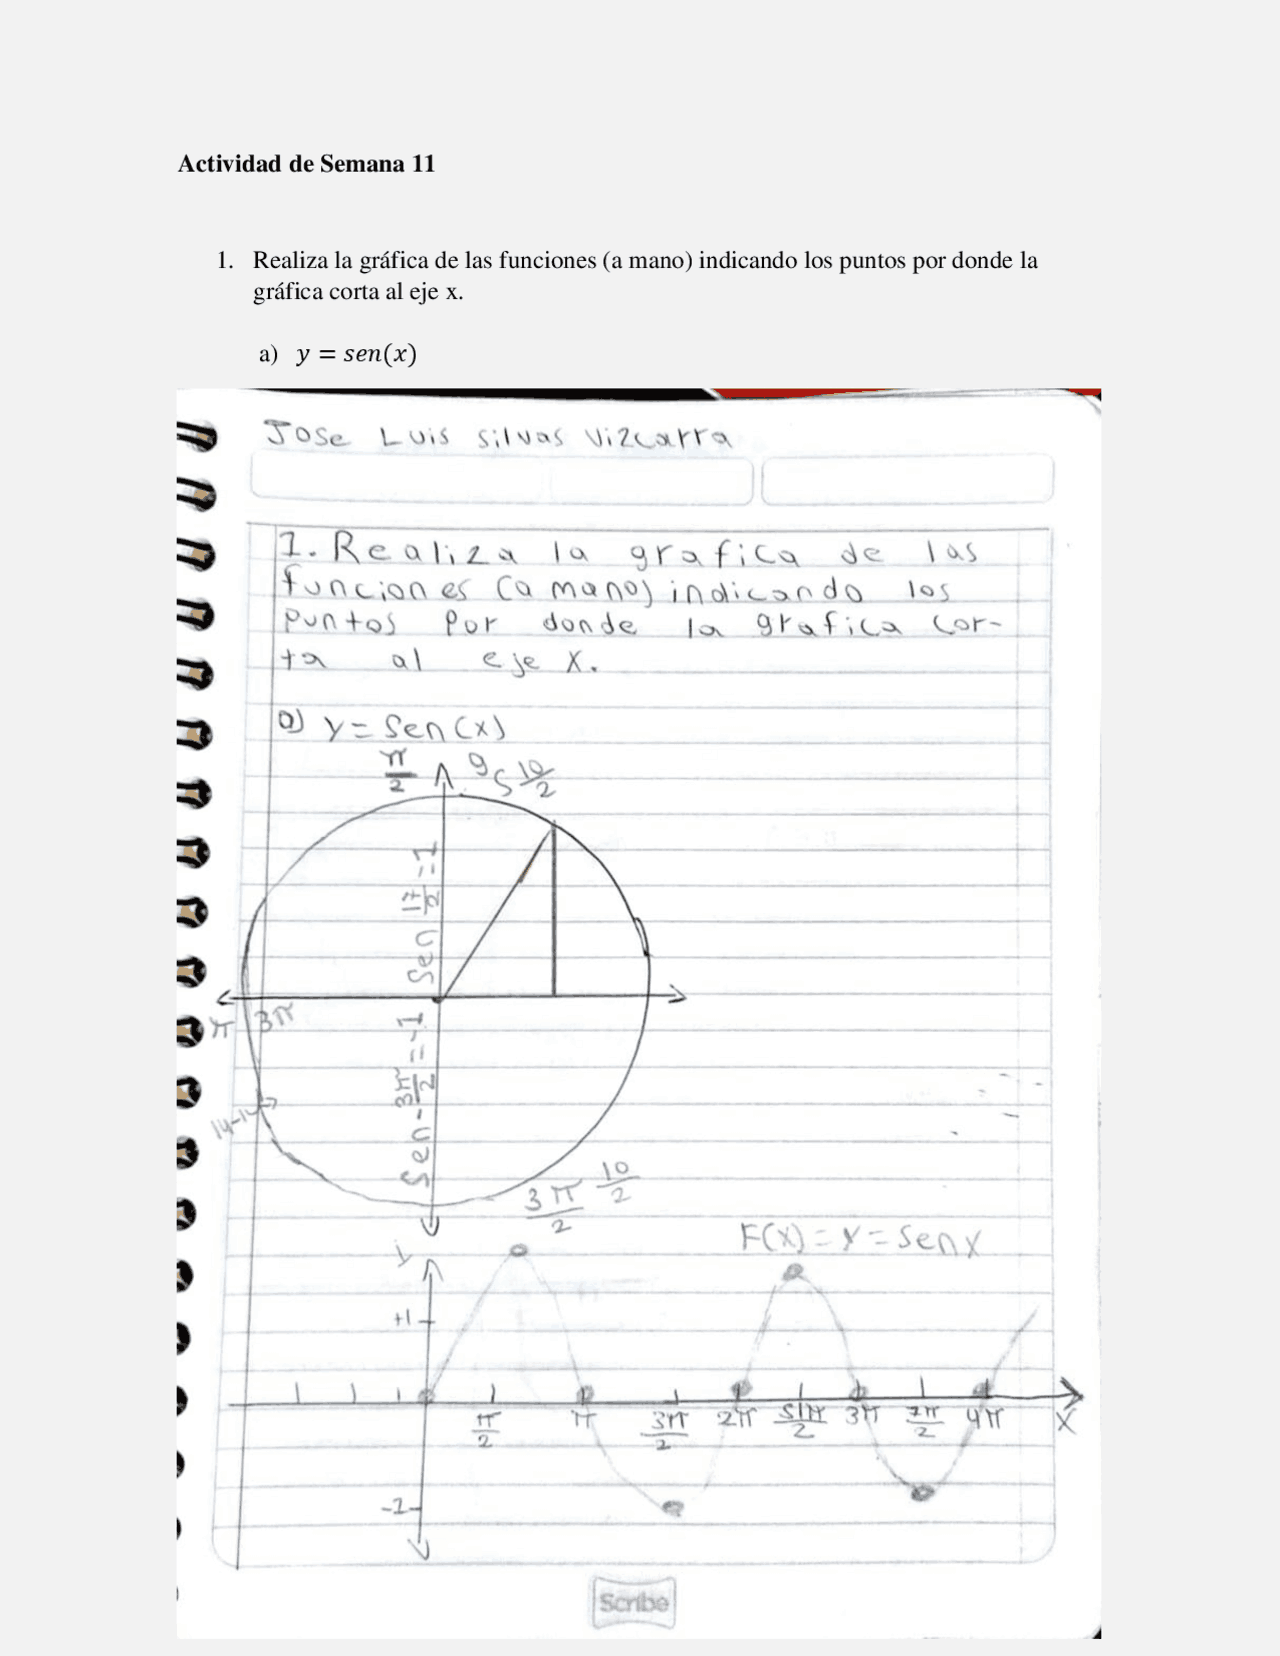 Actividad de Semana 11
1. Realiza la gráfica de las funciones (a mano) indicando los puntos por donde la
gráfica corta al eje x.
a) y = sen(x)
Jose Luis Silvas Vizcarra
1. Realiza la grafica de las
funciones (a mano) indicando los
puntos por donde la grafica cor-
ta al eje x.
a) y = Sen(x)
π/2
10/2
Sen 17/2 = 1
π 3π
Sen - 3π/2 = -1
3π/2 10/2
F(x) = y = Sen x
y
+1
π/2 π 3π/2 2π 5π/2 3π 7π/2 4π X
-1
Scribe